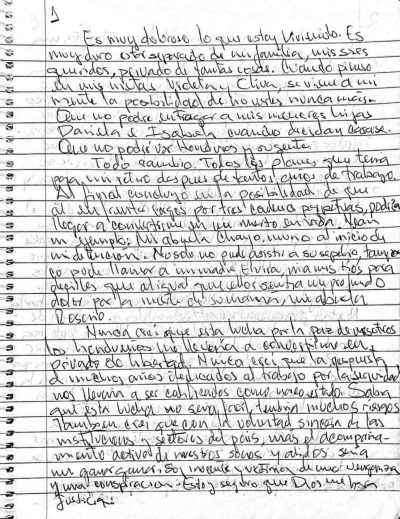 1
Es muy doloroso lo que estoy viviendo. Es
muy duro estar separado de mi familia, mis seres
queridos, privado de tantas cosas. Cuando pienso
en mis nietas, Violeta y Chiva, se viene a mi
mente la posibilidad de no verles nunca más.
Que no podré entregar a mis menores hijas
Daniela e Isabela cuando decidan casarse.
Que no podré ver Honduras y su gente.
Todo cambio. Todos los planes que tenía
para mi retiro después de tantos años de trabajo.
Al final concluyo en la posibilidad de que
al enfrentar cargos por tres cadenas perpetuas, podría
llegar a convertirme en un muerto en vida. Vean
un ejemplo: Mi abuela Chayo, murió al inicio de
mi detención. No solo no pude asistir a su sepelio, tampo-
co pude llamar a mi madre Elvira, ni a mis tíos para
decirles que al igual que ellos sentía un profundo
dolor por la muerte de su mamá, mi abuela
Rosario.
Nunca creí que esta lucha por la paz de nosotros
los hondureños me llevaría a convertirme en
privado de libertad. Nunca creí que la respuesta
a muchos años dedicados al trabajo por la seguridad
nos llevaría a ser calificados como narco estado. Sabía
que esta lucha no sería fácil, tendría muchos riesgos
También creí que con la voluntad sincera de las
instituciones y sectores del país, más el acompaña-
miento activo de nuestros socios y aliados sería
un ganar ganar. Soy inocente y víctima de una venganza
y una conspiración. Estoy seguro que Dios me hará
justicia.